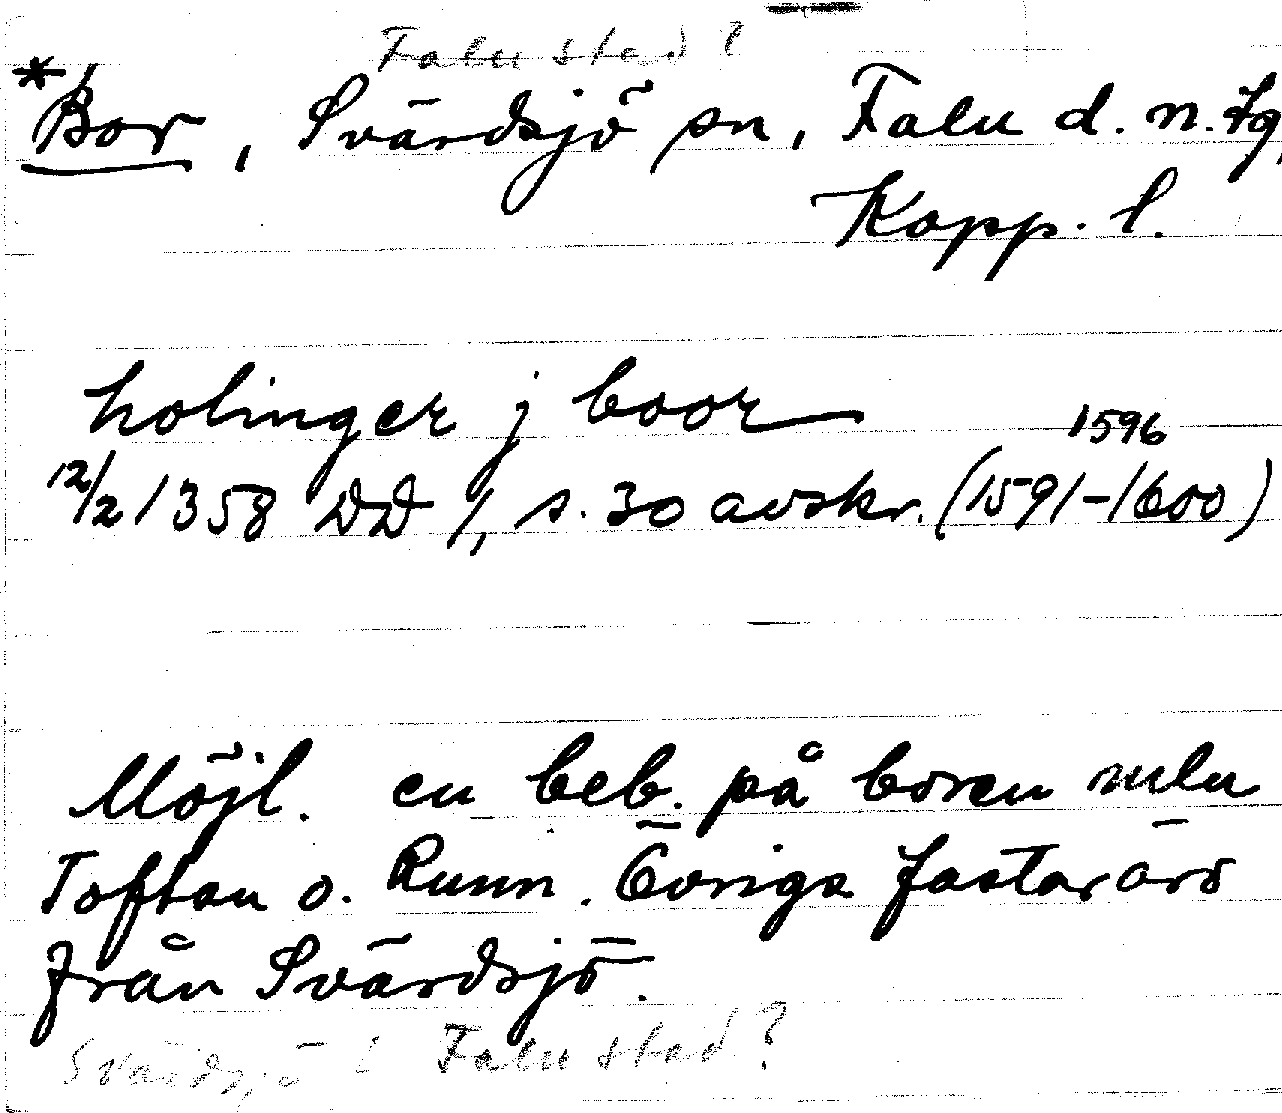 Falu stad?
*Bor, Svärdsjö sn, Falu d. n. tg,
Kopp. l.
holinger j boor
1596
12/2 1358 DD 1, s. 30 avskr. (1591-1600)
Möjl. en beb. på boren mln
Toftan o. Runn. Övriga fastar ärö
från Svärdsjö.
Svärdsjö i Falu stad?